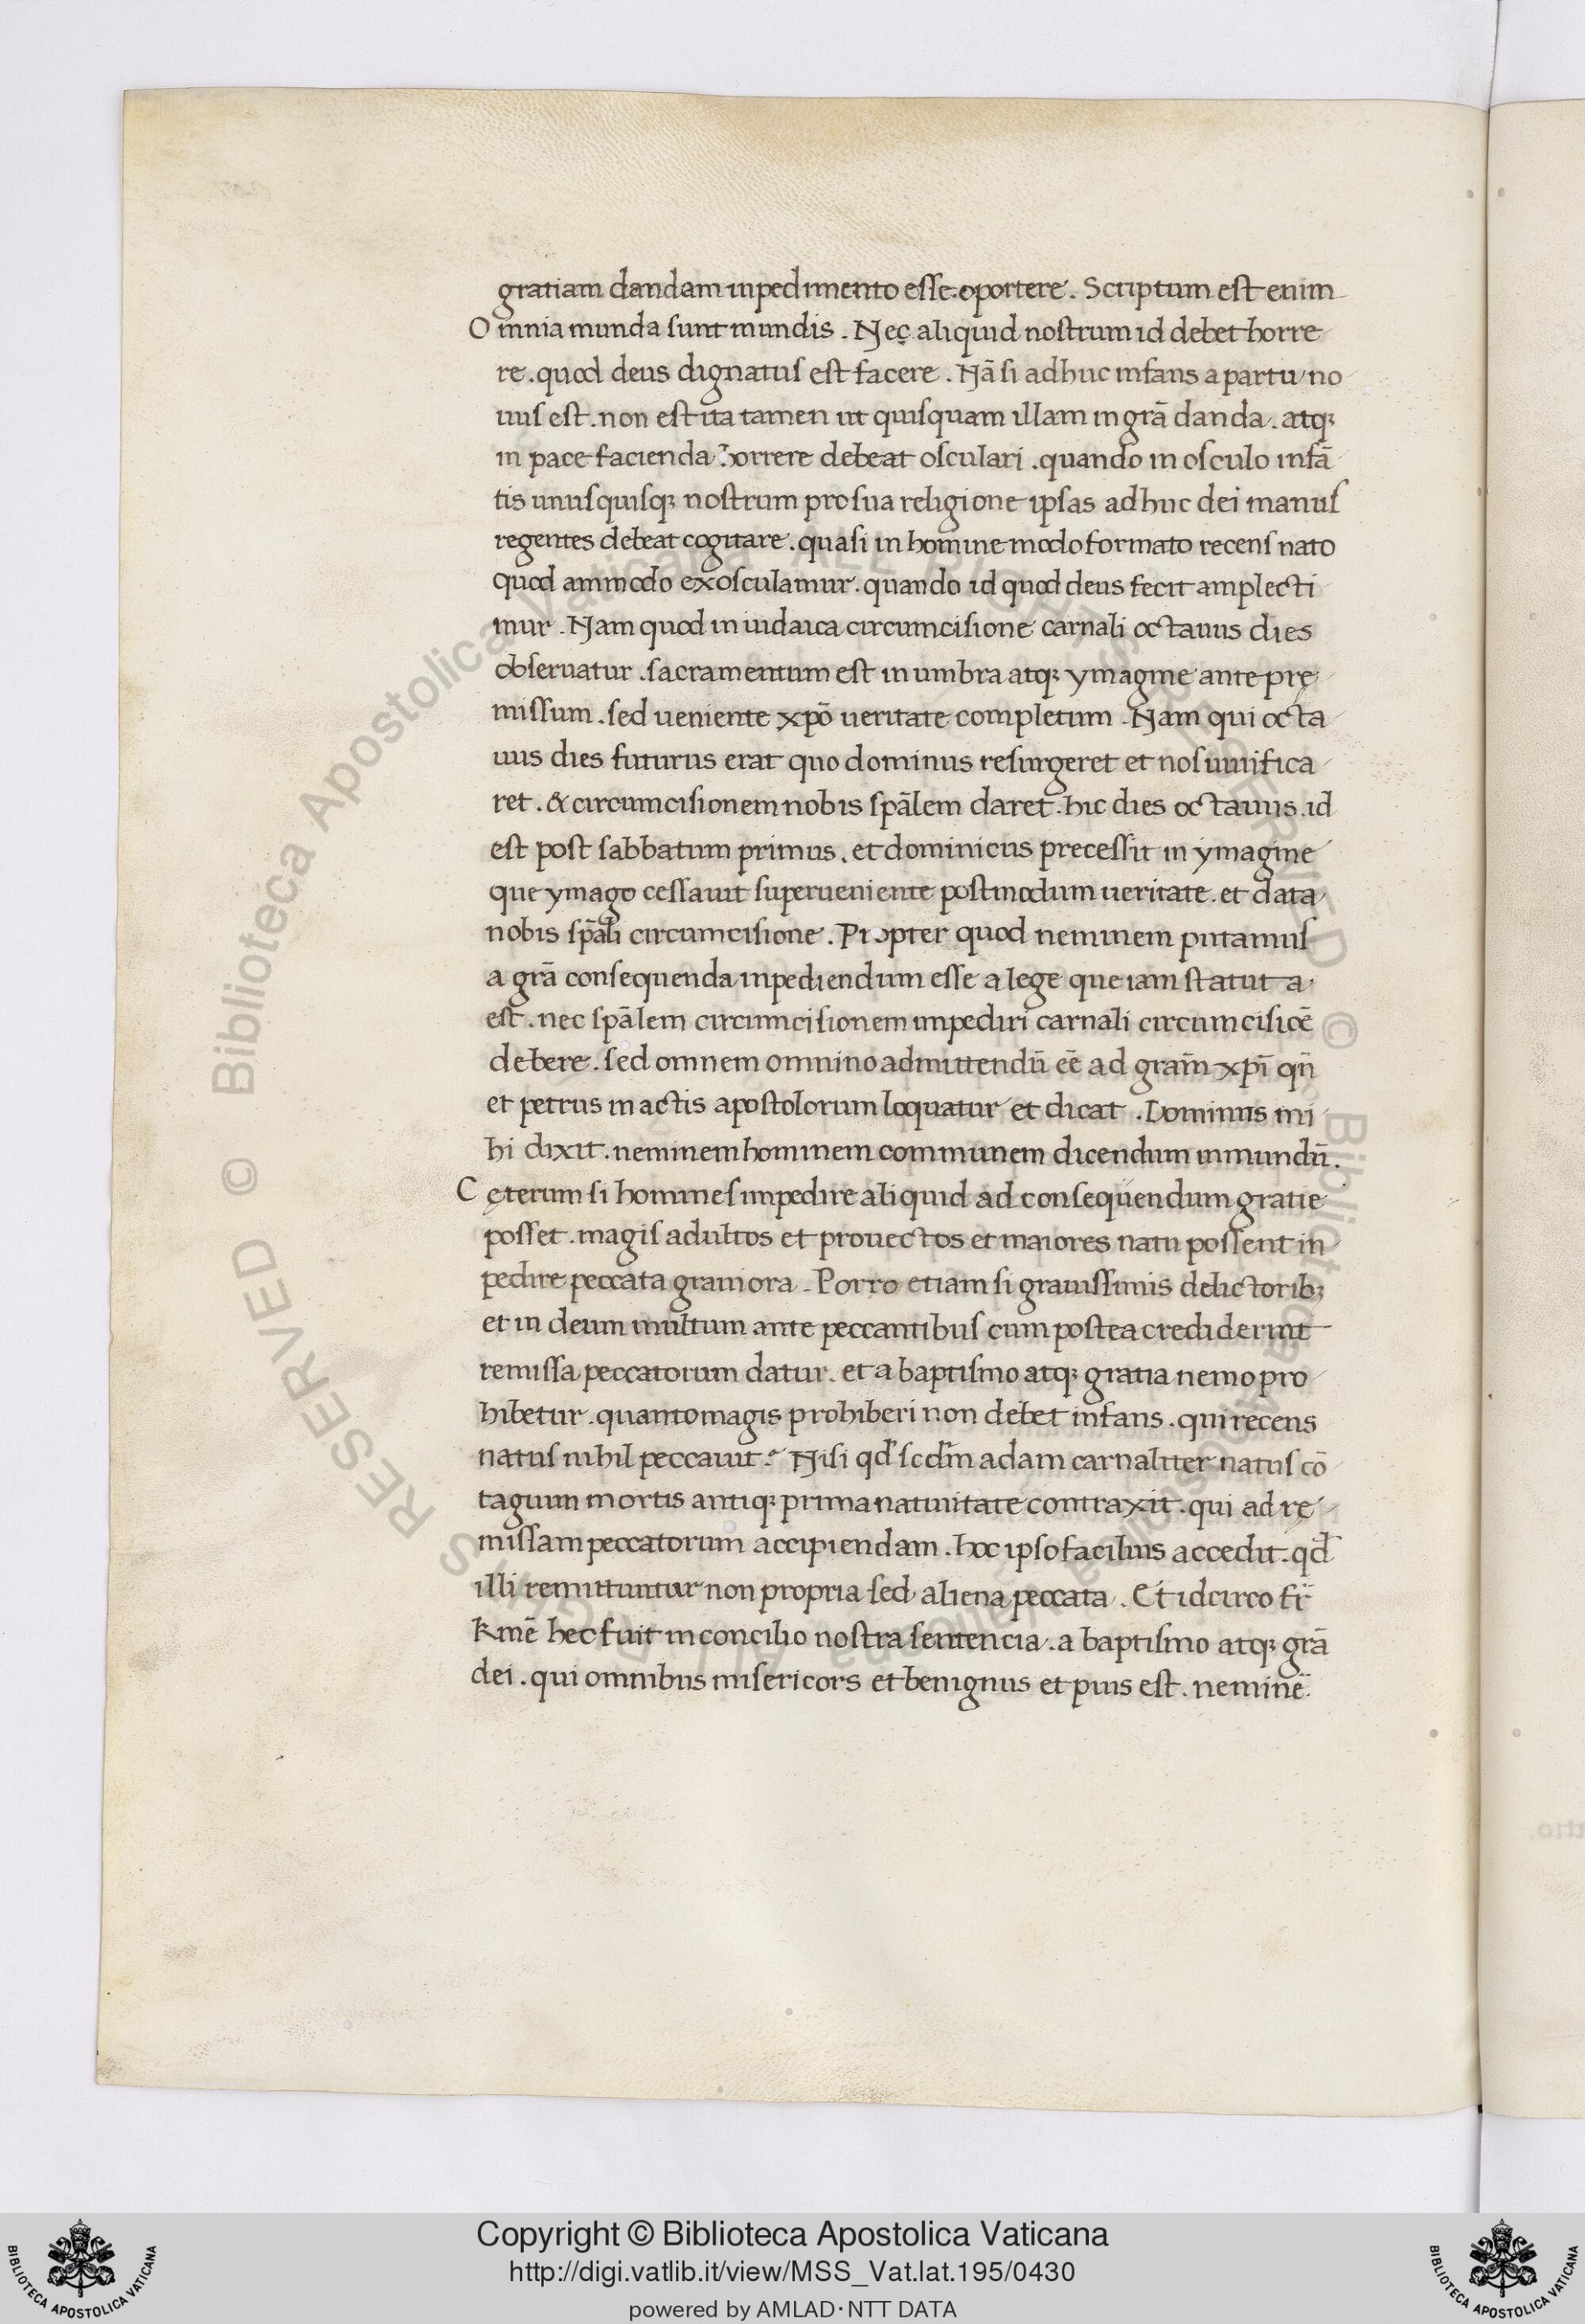 gratiam dandam inpedimento esse oportere. Scriptum est enim
Omnia munda sunt mundis. Nec aliquid nostrum id debet horre
re. quod deus dignatus est facere. Nā si adhuc infans a partu no
uus est. non est ita tamen ut quisquam illam in grā danda. atq;
in pace facienda horrere debeat osculari. quando in osculo infā
tis unusquisq; nostrum pro sua religione ipsas adhuc dei manus
regentes debeat cogitare. quasi in homine modo formato recens nato
quod ammodo exosculamur. quando id quod deus fecit amplecti
mur. Nam quod in iudaica circumcisione carnali octauus dies
obseruatur. sacramentum est in umbra atq; ymagine ante prę
missum. sed ueniente xpō ueritate completum. Nam qui octa
uus dies futurus erat quo dominus resurgeret et nos uiuifica
ret. & circumcisionem nobis spālem daret. hic dies octauus. id
est post sabbatum primus. et dominicus precessit in ymagine
que ymago cessauit superueniente postmodum ueritate. et data
nobis spāli circumcisione. Propter quod neminem putamus
a grā consequenda inpediendum esse a lege que iam statuta
est. nec spālem circumcisionem impediri carnali circumcisiōe
debere. sed omnem omnino admittendū eē ad grām xpī qn̄
et petrus in actis apostolorum loquatur et dicat. Dominus mi
hi dixit. neminem hominem communem dicendum inmundū.
Cęterum si homines impedire aliquid ad consequendum gratie
posset. magis adultos et prouectos et maiores natu possent in
pedire peccata grauiora. Porro etiam si grauissimis delictorib;
et in deum multum ante peccantibus cum postea crediderint
remissa peccatorum datur. et a baptismo atq; gratia nemo pro
hibetur. quanto magis prohiberi non debet infans. qui recens
natus nihil peccauit? Nisi qd̄ scdm̄ adam carnaliter natus cō
tagium mortis antiq; prima natiuitate contraxit. qui ad rę
missam peccatorum accipiendam. hoc ipso facilius accedit. qd̄
illi remittuntur non propria sed aliena peccata. Et idcirco fr̄
k-mē hec fuit in concilio nostra sentencia. a baptismo atq; grā
dei. qui omnibus misericors et benignus et pius est. neminē
Copyright © Biblioteca Apostolica Vaticana
http://digi.vatlib.it/view/MSS_Vat.lat.195/0430
powered by AMLAD·NTT DATA